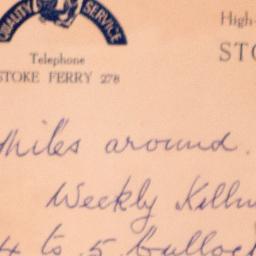 QUALITY SERVICE
High-
Telephone
STOKE FERRY 278
STO
Miles around.
Weekly Killin
4 to 5 bullock